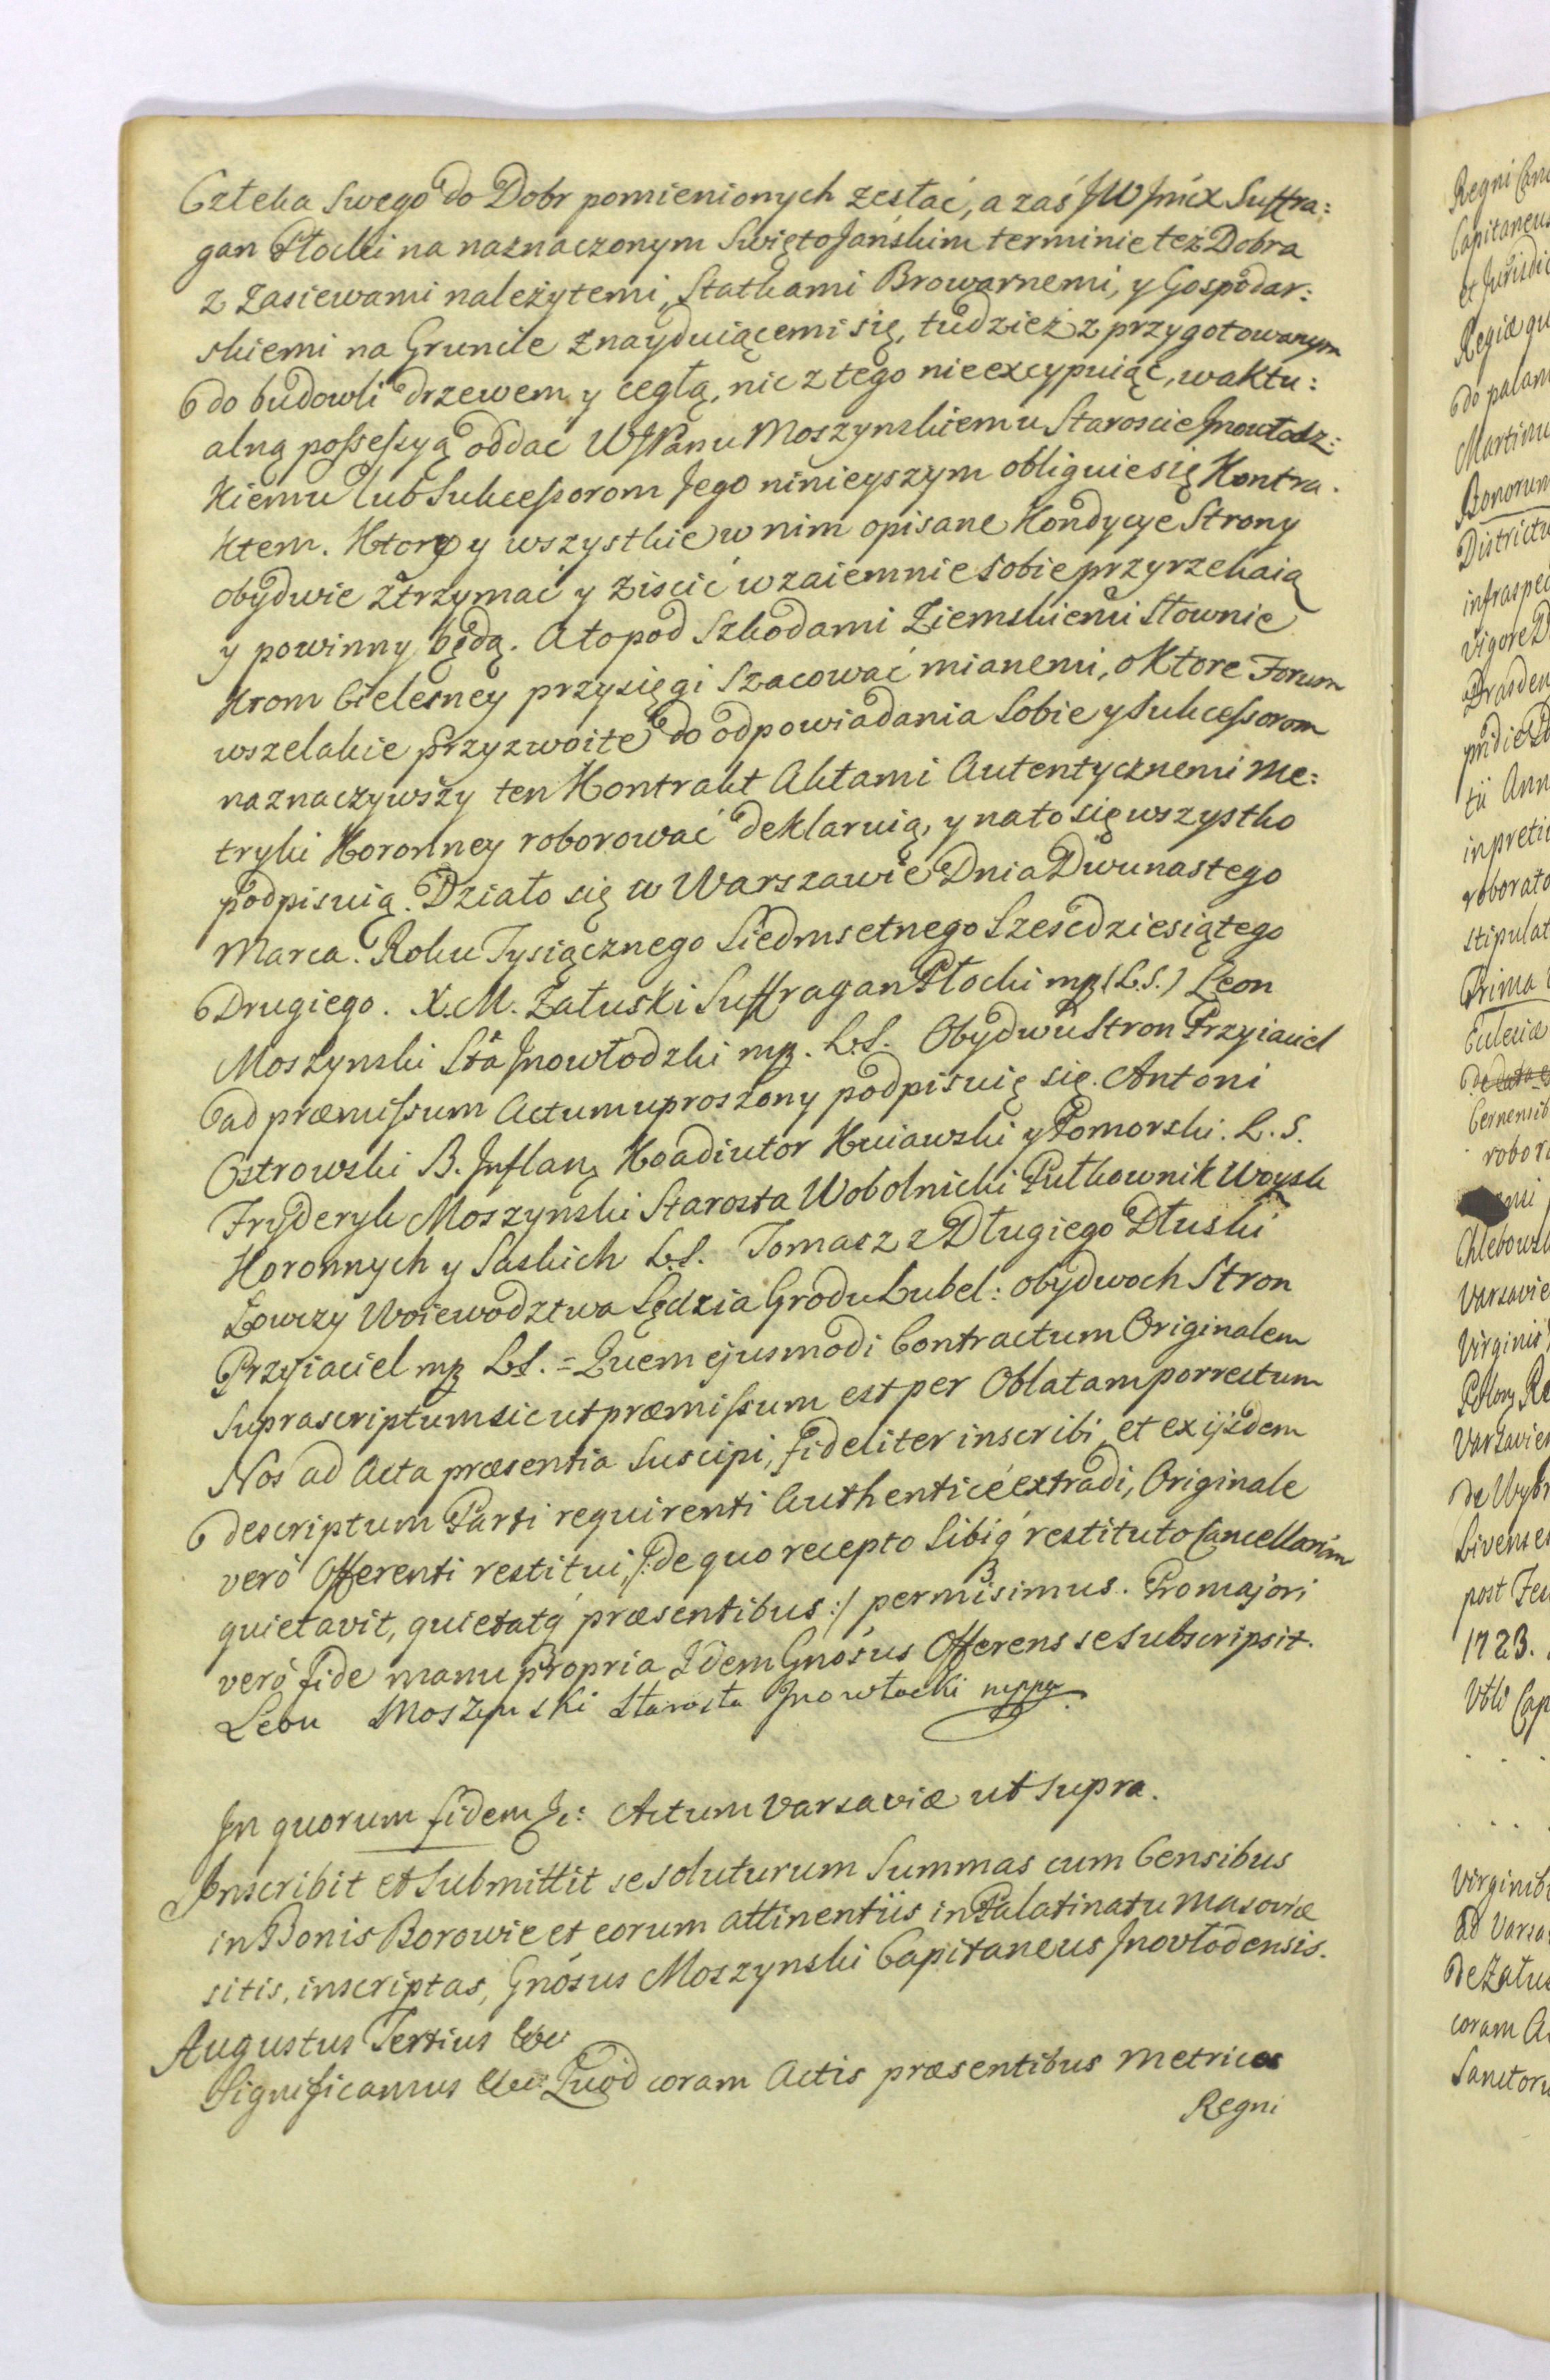 Człeka Swego do Dobr pomienionych zesłać, a zaś JW Jmćx Suffra:
gan Płocki na naznaczonym SwiętoJańskim terminie też Dobra
z zasiewami należytemi, Statkami Browarnemi, y Gospodar:
skiemi na Gruncie znayduiącemi się, tudzież z przygotowanym
do budowli drzewem y cegłą, nic z tego nie excypuiąc, w aktu:
alną possessyą oddac WJPanu Moszynskiemu Staroscie Jnowłodz:
kiemu lub Sukcessorom Jego ninieyszym obliguie się Kontra.
ktem. Ktory y wszystkie w nim opisane Kondycye Strony
obydwie ztrzymać y ziscić wzaiemnie sobie przyrzekaią
y powinny będą. A to pod Szkodami Ziemskiemi Słownie
krom Cielesney przysięgi Szacować mianemi, o ktore Forum
wszelakie przyzwoite do odpowiadania Sobie y Sukcessorom
naznaczywszy ten Kontrakt Aktami Autentycznemi Me:
tryki Koronney roborować deklaruią, y na to się wszystko
podpisuią. Działo się w Warszawie Dnia Dwunastego
Marca. Roku Tysiącznego Siedmsetnego Szescdziesiątego
Drugiego. X. M. Załuski Suffragan Płocki mp (L.S.) Leon
Moszynski Stã Jnowłodzki mp. L.S. Obydwu Stron Przyiaciel
ad præmissum Actum uproszony podpisuię się. Antoni
Ostrowski B. Jnflanŧ Koadiutor Kuiawski y Pomorski. L.S.
Fryderyk Moszynski Starosta Wobolnicki Pułkownik Woysk
Koronnych y Saskich L.S. Tomasz z Długiego Dłuski
Łowczy Woiewodztwa Sędzia Grodu Lubel: obydwoch Stron
Przyiaciel mp L.S. = Quem ejusmodi Contractum Originalem
Suprascriptum sicut præmissum est per Oblatam porrectum
Nos ad Acta præsentia Suscipi, fideliter inscribi, et ex ijsdem
descriptum Parti requirenti Authenticè extradi, Originale
verò Offerenti restitui, /: de quo recepto Sibiq́ restituto Cancellariam
quietavit, quietatq́ præsentibus :/ permisimus. Pro majori
verò fide manu propria Idem Gnósus Offerens se subscripsit.
Leon Moszynski Starosta Jnowłocki mppa

Jn quorum fidem &c: Actum Varsaviæ ut Supra.
Jnscribit et Submittit se soluturum Summas cum Censibus
in Bonis Borowie et eorum attinentiis in Palatinatu Masoviæ
sitis, inscriptas, Gnósus Moszynski Capitaneus Jnovłodensis.
Augustus Tertius &c
Significamus &c: Quod coram Actis præsentibus Metrices
Regni
Capitaneus
Regiæ
Martinu
Bonorum
Districtu
Vigore
tii Ann
roborato
stipulat
Prima
robor
Chlebows
Varsavie
Virginis
Polon Re
Varsavien
Livenses
post
1723.
Virginib
ad Varsa
de Załus
coram A
Sanctor